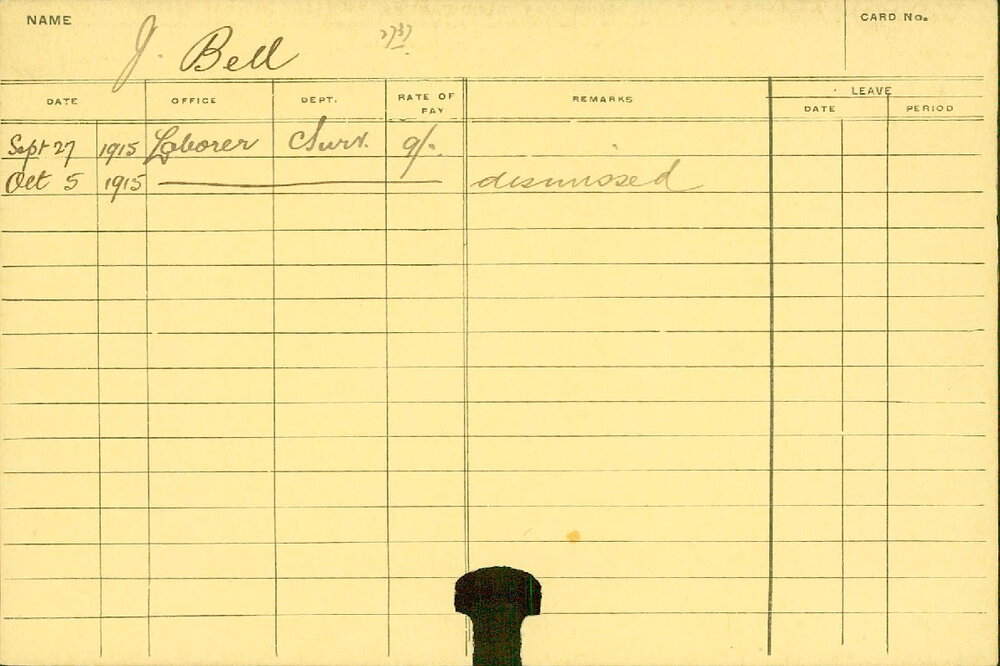 NAME
CARD No.
J. Bell
DATE OFFICE DEPT. RATE OF PAY REMARKS LEAVE
DATE PERIOD
Sept 27 1915 Laborer Surv. 9/-
Oct 5 1915 dismissed